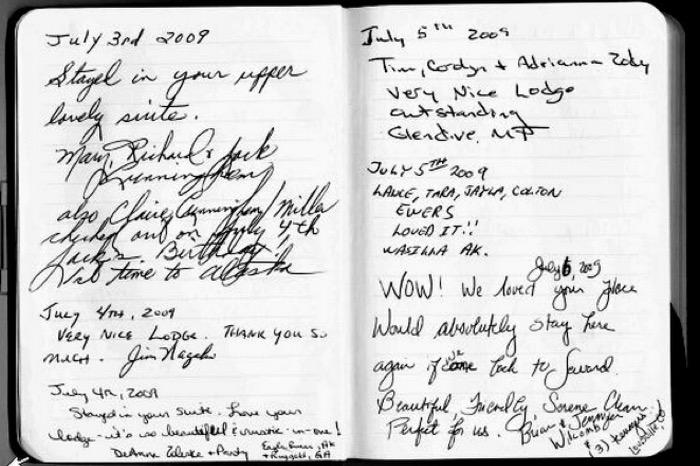 July 3rd 2009
Stayed in your upper
lovely suite.
Mary, Richard & Jack
Cunningham
also Claire Cunningham/Miller
checked out on July 4th
Jack's Birthday!
1st time to Alaska
July 4th, 2009
Very Nice Lodge. Thank you so
much. Jim
July 4th, 2009
Stayed in your suite. Love your
lodge - it's so beautiful & rustic - in-one!
DeAnna & Party
Eagle River, AK
&, GA
July 5th 2009
Tim, & Adrianna
Very Nice Lodge
outstanding
Glendive, MT
July 5th 2009
Lance, Tara, Jayla, Colton
Ewers
Loved it!!
Wasilla AK.
July 6, 2009
WOW! We loved your place
Would absolutely stay here
again if we come back to Seward.
Beautiful, Friendly, Serene, Clean
Perfect for us. Brian & Jennifer
& (3)